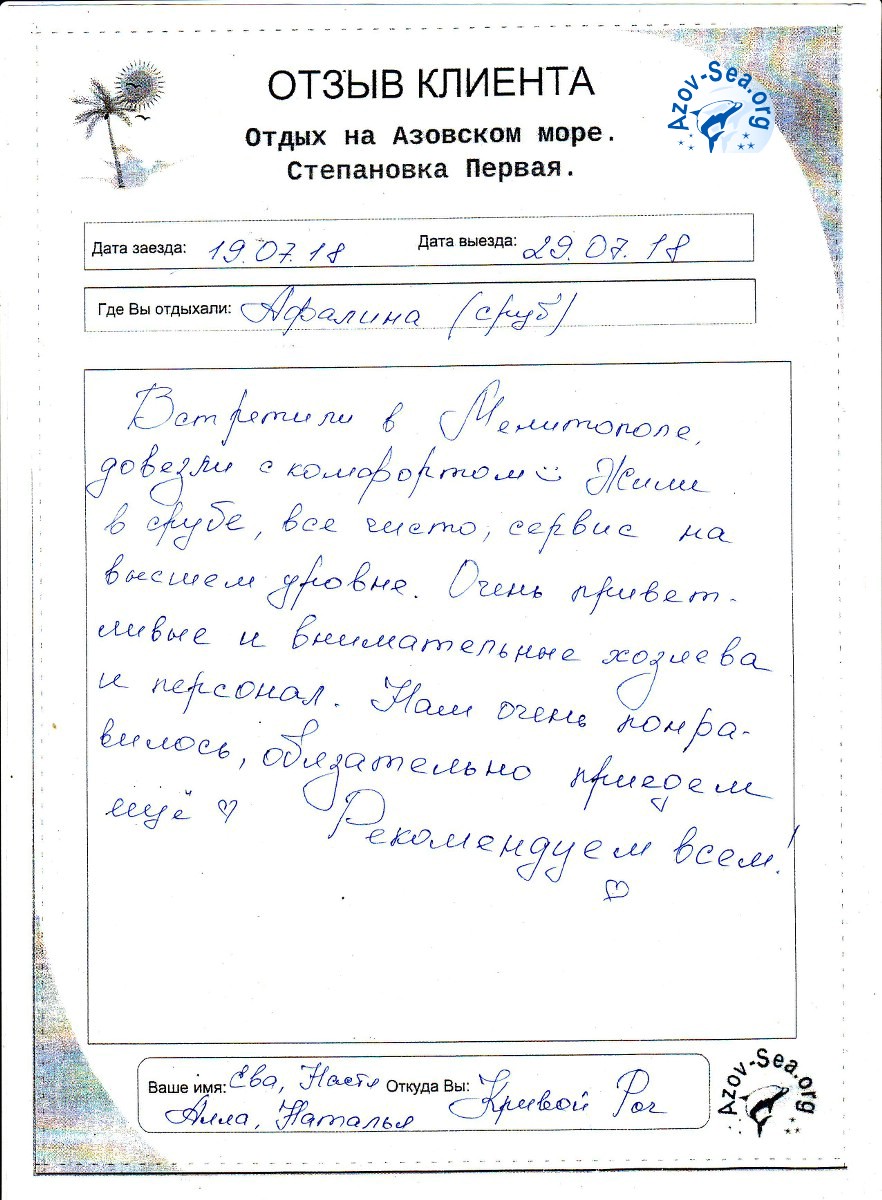 ОТЗЫВ КЛИЕНТА
Azov-Sea.org
Отдых на Азовском море.
Степановка Первая.
Дата заезда: 19.07.18 Дата выезда: 29.07.18
Где Вы отдыхали: Афалина (сруб)
Встретили в Мелитополе,
довезли с комфортом Жили
в срубе, все чисто, сервис на
высшем уровне. Очень привет-
ливые и внимательные хозяева
и персонал. Нам очень понра-
вилось, обязательно приедем
ещё ♡ Рекомендуем всем!
♡
Ваше имя: Ева, Настя Откуда Вы: Кривой Рог
Алла, Наталья
Azov-Sea.org